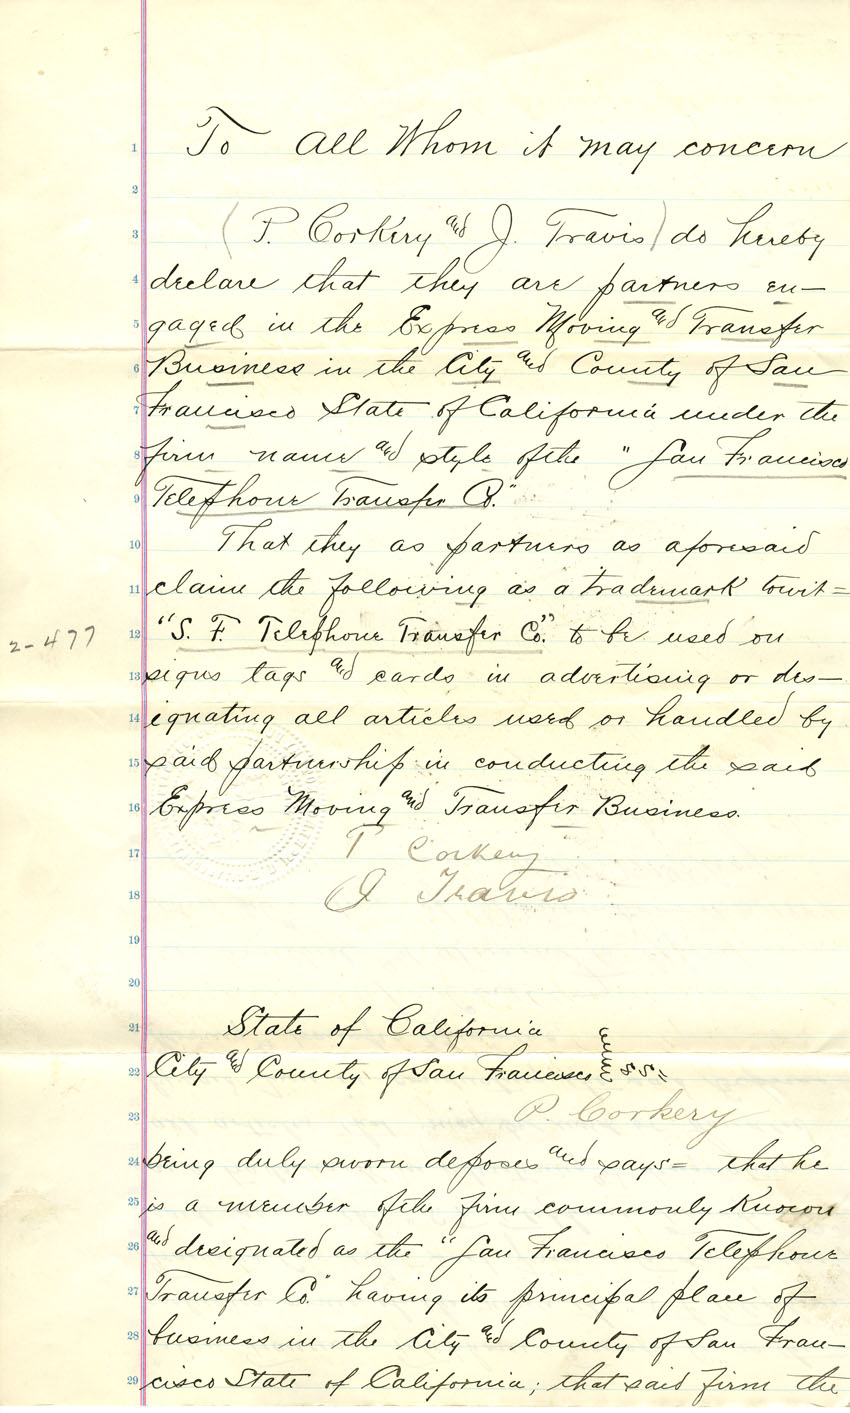 1 To All Whom it may concern
2
3 (P. Corkery and J. Travis) do hereby
4 declare that they are partners en-
5 gaged in the Express Moving and Transfer
6 Business in the City and County of San
7 Francisco State of California under the
8 firm name and style of the "San Francisco
9 Telephone Transfer Co."
10 That they as partners as aforesaid
11 claim the following as a trademark towit=
2-477
12 "S. F. Telephone Transfer Co." to be used on
13 signs tags and cards in advertising or des-
14 ignating all articles used or handled by
15 said partnership in conducting the said
16 Express Moving and Transfer Business.
17 P Corkery
18 J Travis
19
20
21 State of California
22 City and County of San Francisco } ss=
23 P. Corkery
24 being duly sworn deposes and says= that he
25 is a member of the firm commonly Known
26 and designated as the "San Francisco Telephone
27 Transfer Co." having its principal place of
28 business in the City and County of San Fran-
29 cisco State of California; that said firm the